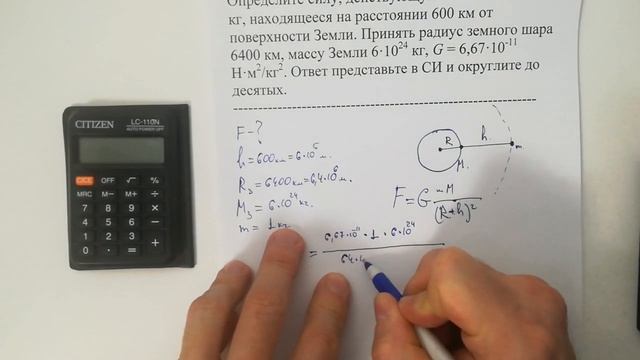 Определите силу,
кг, находящееся на расстоянии 600 км от
поверхности Земли. Принять радиус земного шара
6400 км, массу Земли 6·10²⁴ кг, G = 6,67·10⁻¹¹
Н·м²/кг². Ответ представьте в СИ и округлите до
десятых.
CITIZEN
LC-110N
AUTO POWER OFF
C/CE OFF √ %
MRC M− M+ ÷
7 8 9 ×
4 5 6 −
1 2 3 +
0 · =
F - ?
h = 600км = 6·10⁵ м.
R₃ = 6400км = 6,4·10⁶ м.
M₃ = 6·10²⁴ кг.
m = 1 кг
R h m
M
F = G mM/(R+h)²
= 6,67·10⁻¹¹ · 1 · 6·10²⁴